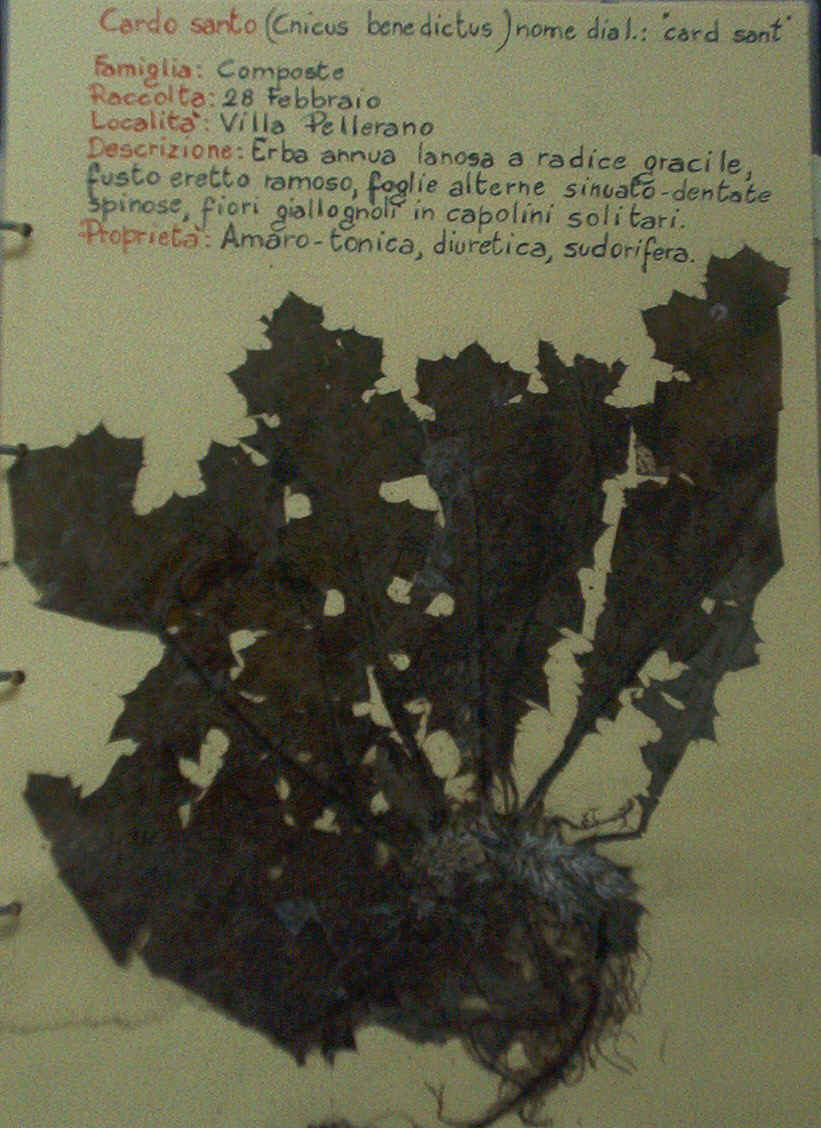 Cardo santo (Cnicus benedictus) nome dial.: "card sant"
Famiglia: Composte
Raccolta: 28 Febbraio
Località: Villa Pellerano
Descrizione: Erba annua lanosa a radice gracile,
fusto eretto ramoso, foglie alterne sinuato-dentate
spinose, fiori giallognoli in capolini solitari.
Proprietà: Amaro-tonica, diuretica, sudorifera.